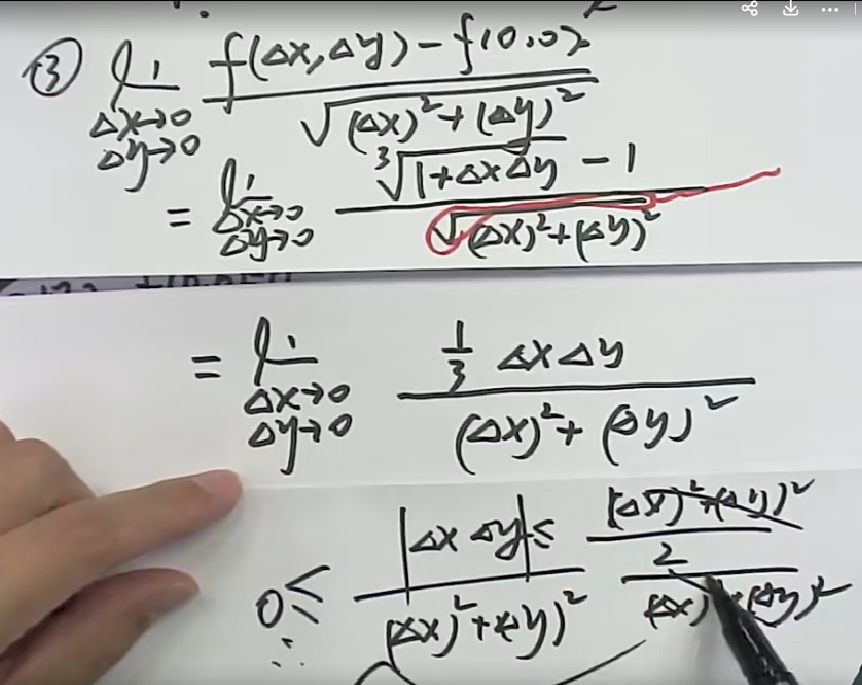 ③ lim Δx→0 Δy→0 f(Δx,Δy)-f(0,0) / √((Δx)²+(Δy)²)
= lim Δx→0 Δy→0 ∛(1+ΔxΔy) - 1 / √((Δx)²+(Δy)²)
= lim Δx→0 Δy→0 1/3 ΔxΔy / (Δx)²+(Δy)²
0 ≤ |ΔxΔy| / (Δx)²+(Δy)² ≤ (Δx)²+(Δy)² / 2 / (Δx)²+(Δy)²